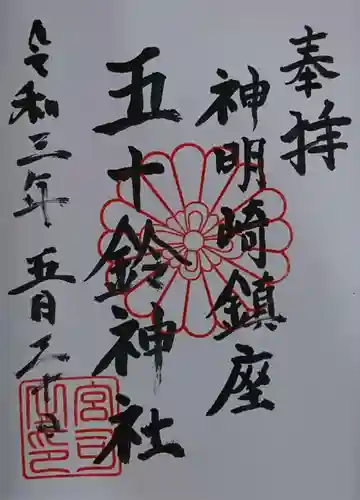 奉拝
神明崎鎮座
五十鈴神社
令和三年五月二十日
宮司之印